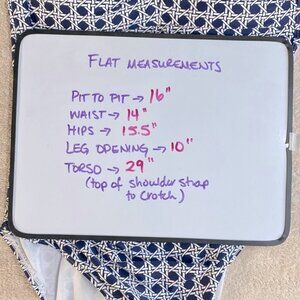 FLAT MEASUREMENTS
PIT TO PIT → 16"
WAIST → 14"
HIPS → 15.5"
LEG OPENING → 10"
TORSO → 29"
(top of shoulder strap
to crotch)